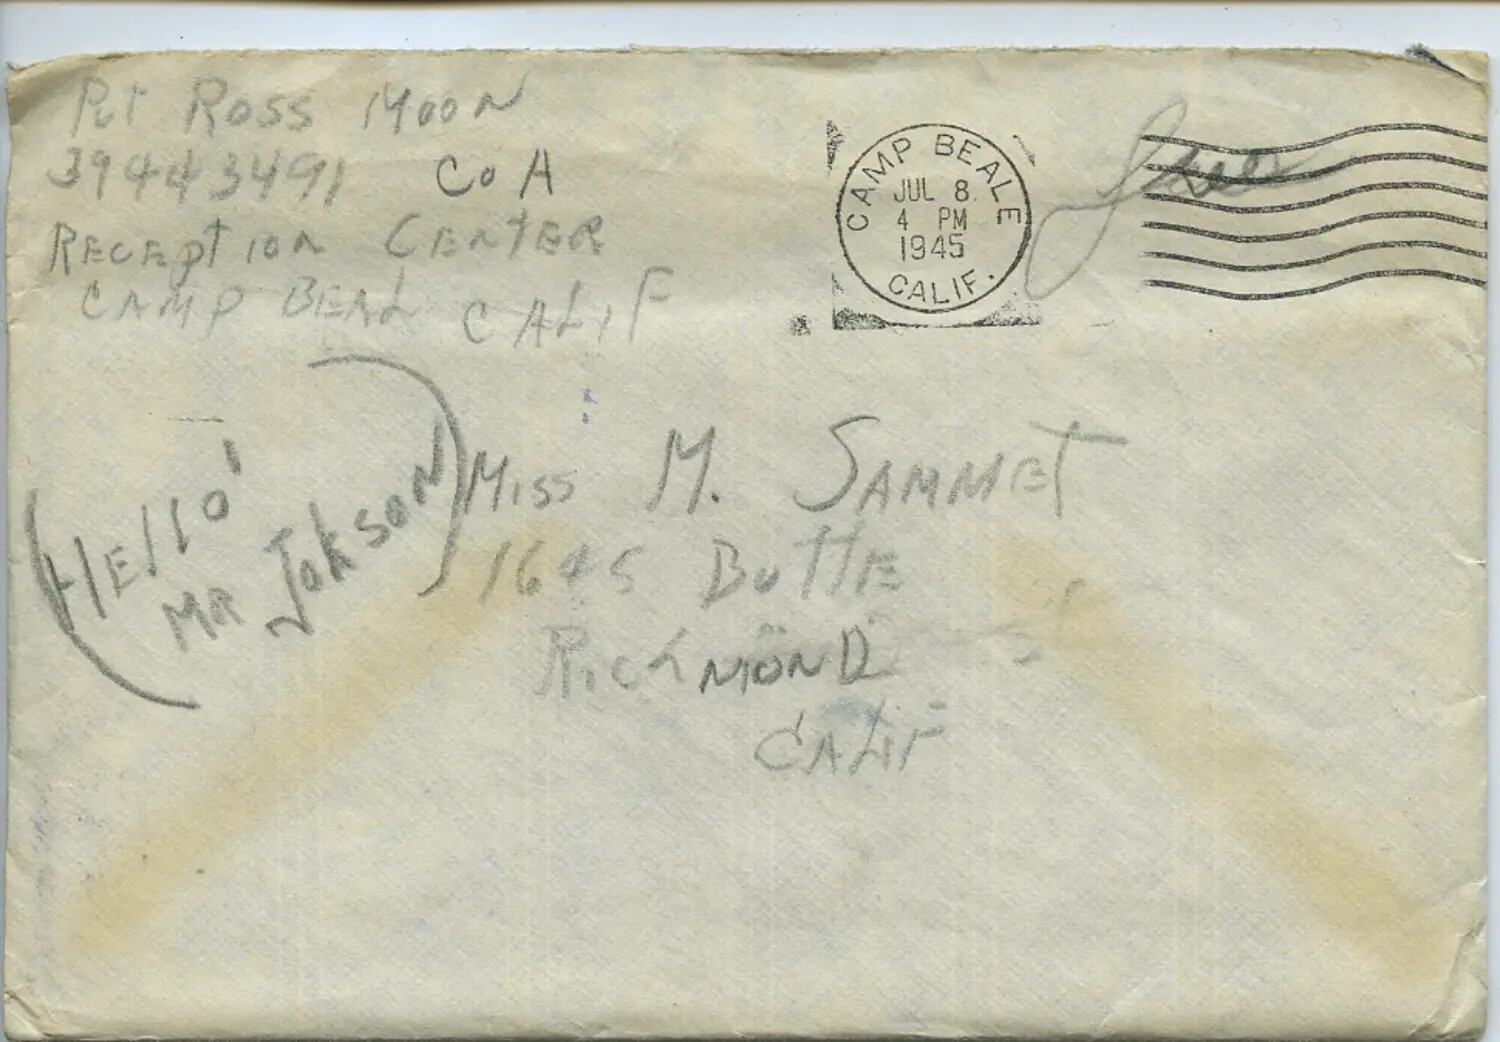 Pvt Ross Moon
39443491 Co A
RECEPTION CENTER
CAMP BEAL CALIF
CAMP BEALE
JUL 8
4 PM
1945
CALIF.
Free
(HEllo!
MR JOKSON)
Miss M. SAMMET
1645 BUTTE
RichMOND
CALIF